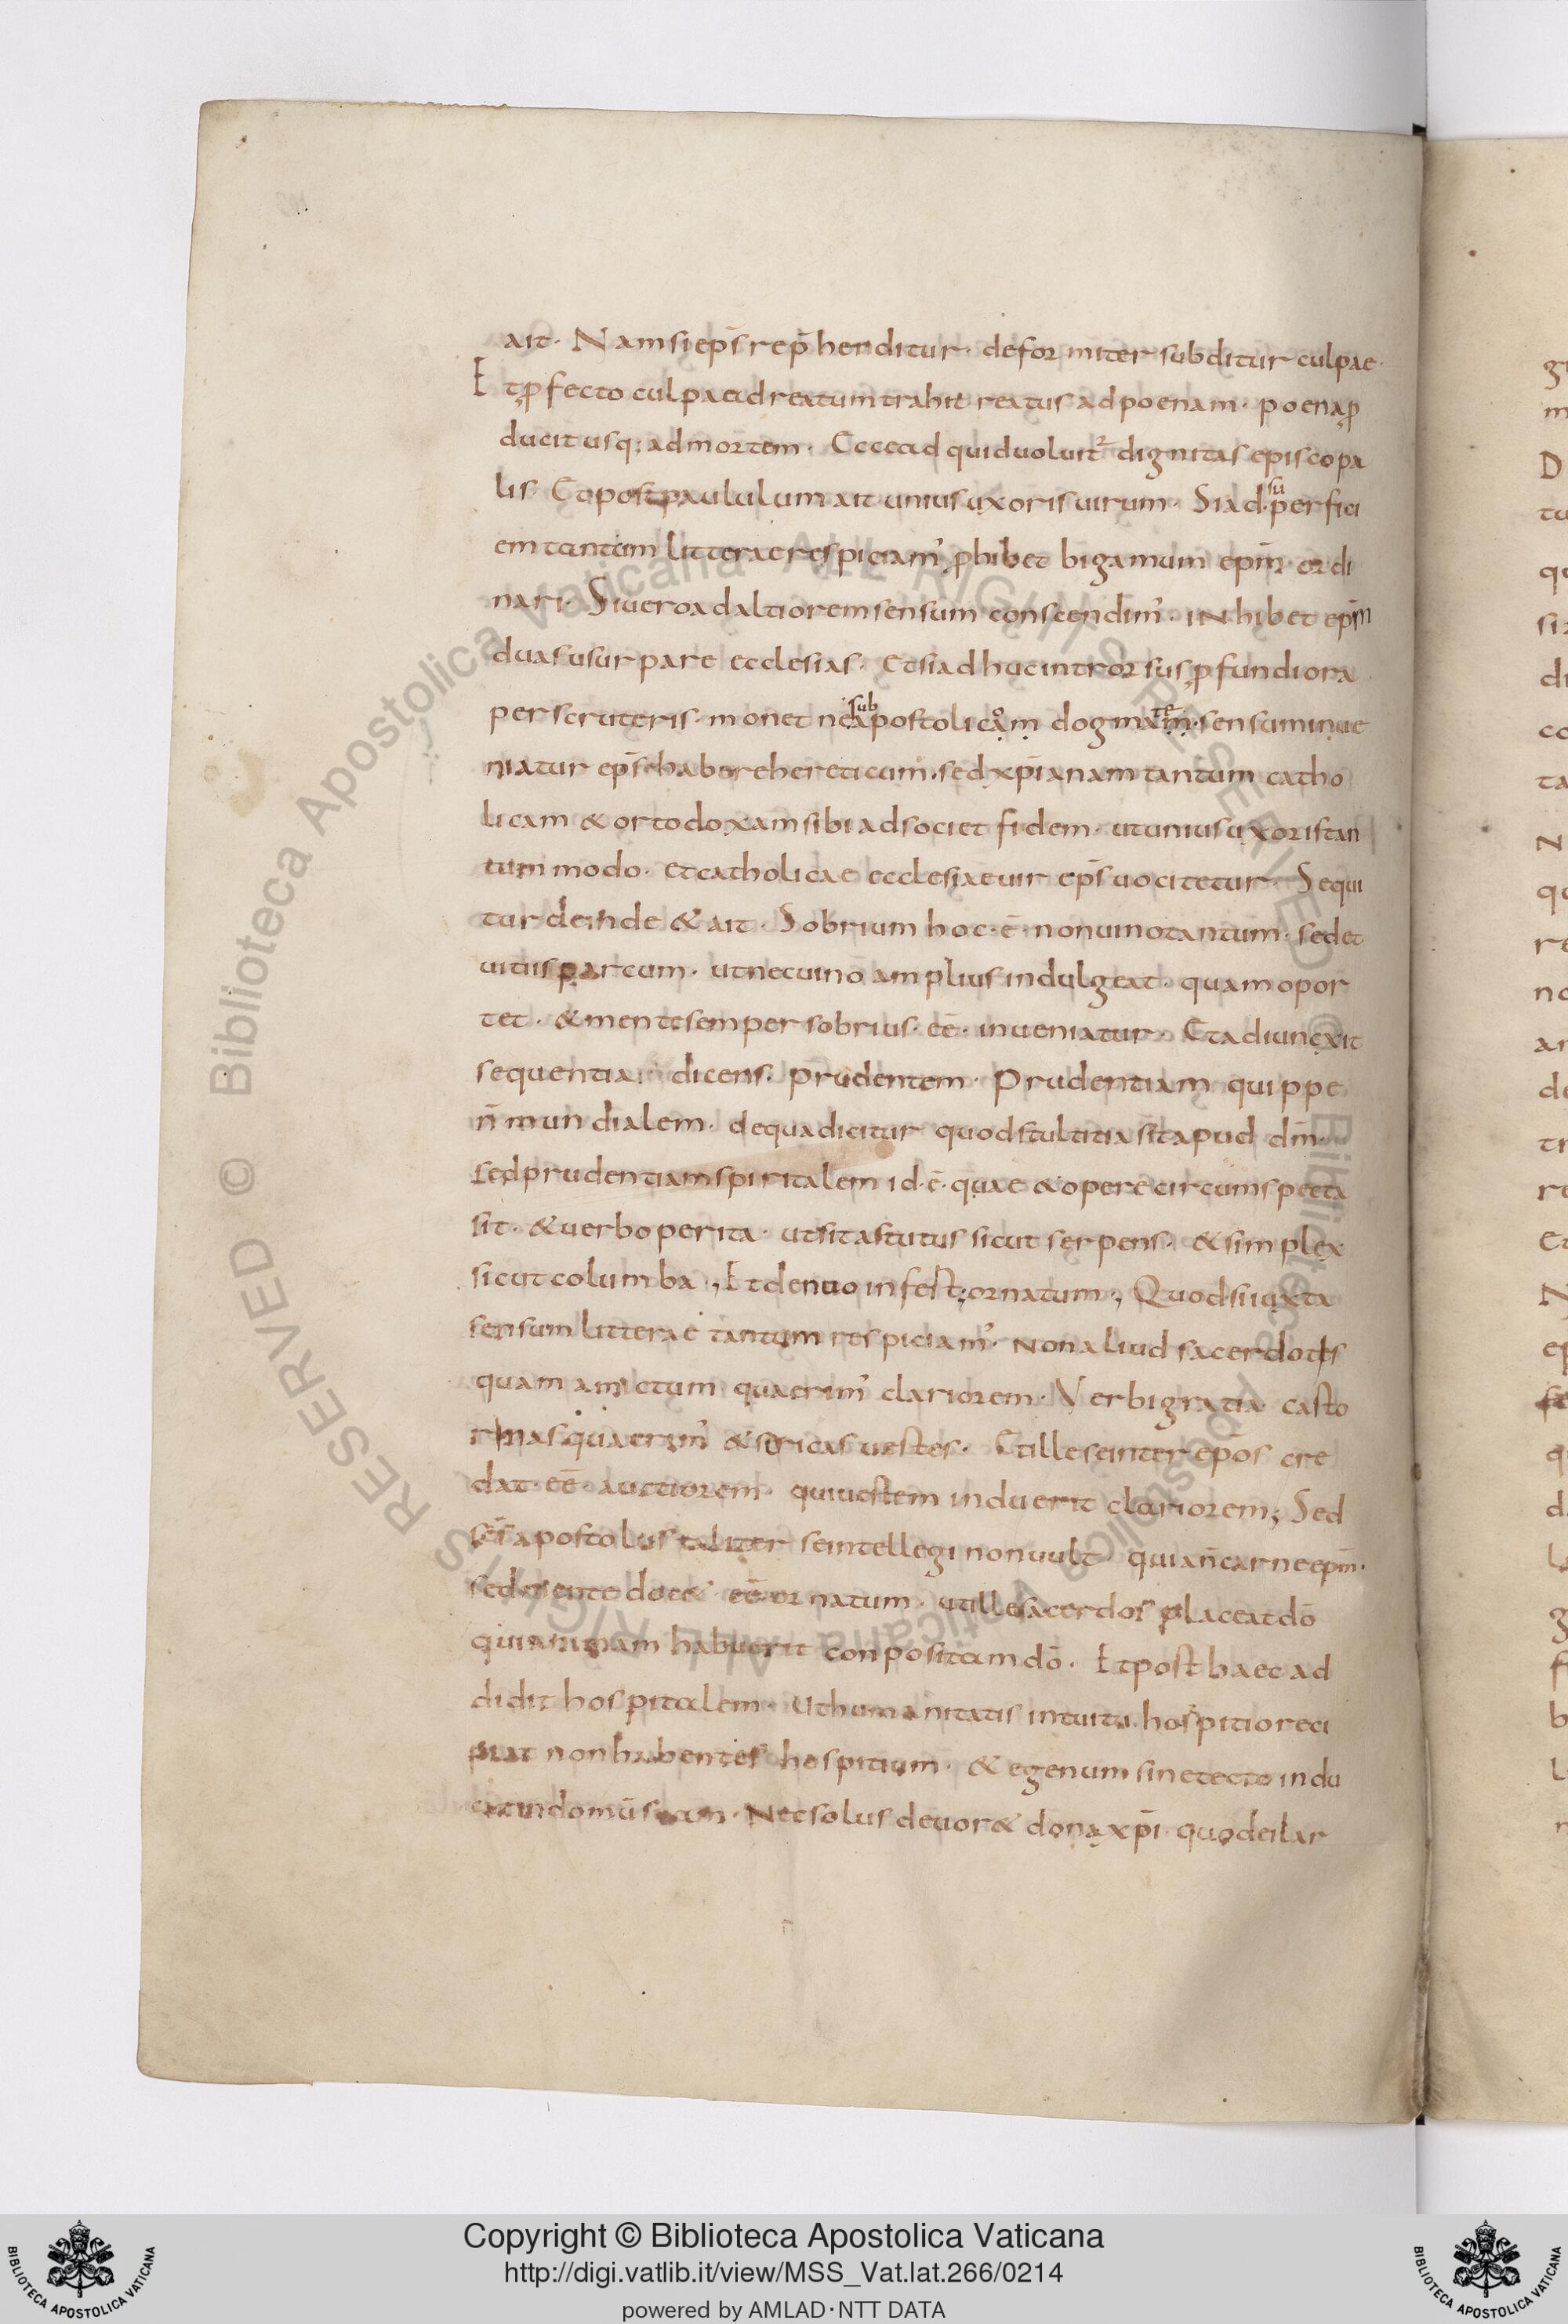 ait· Nam si ep̄s rep̄henditur· deformiter subditur culpae·
Et ꝓfecto culpa ad reatum trahit reatus ad poenam· poena ꝓ
ducit usq; ad mortem· Ecce ad quid uoluit᷑ dignitas episcopa
lis· Et post paululum ait unius uxoris uirum· Si ad superfici
em tantum litterae respiciam᾽ ꝓhibet bigamum ep̄m ordi
nari· Si uero ad altiorem sensum conscendim᾽· inhibet ep̄m
duas usurpare ecclesias· Et si adhuc introrsus ꝓfundiora
perscruteris· monet ne sub apostolico̊ ạṃ dogmate ạṃ· sensum inue
niatur ep̄s habere hereticum· sed xp̄ianam tantum catho
licam & ortodoxam sibi adsociet fidem· ut unius uxoris tan
tum modo· et catholicae ecclesiae uir ep̄s uocitetur· Sequi
tur deinde & ait· Sobrium hoc·ē· non uino tantum· sed et
uitiis parcum· ut nec uino amplius indulgeat· quam opor
tet· & mente semper sobrius· eē· inueniatur· Et adiuncxit
sequentia dicens· prudentem· Prudentiam quippe
n̄ mundialem· de qua dicitur quod stultitia sit apud dm̄·
sed prudentiam spiritalem id·ē· quae & opere circumspecta
sit· & uerbo perita· ut sit astutus sicut serpens· & simplex
sicut columba·, Et denuo infest; ornatum·, Quod si iuxta
sensum litterae tantum respiciam᾽· non aliud sacerdotis
quam amictum quaerim᾽ clariorem· Verbi gratia casto
rinas quaerim᾽ & sericas uestes· Et ille se inter ep̄os cre
dat· eē· auctiorem· qui uestem induerit clariorem; Sed
sc̄s apostolus taliter se intellegi non uult· quia n̄ carne ep̄m·
sed mente doc& eē ornatum· ut ille sacerdos placeat dō
qui animam habuerit conpositam dō· Et post haec ad
didit hospitalem· Ut humanitatis intuitu hospitio reci
piat non habentes hospitium· & egenum sine tecto indu
cat in domū suam· Nec solus deuor& dona xp̄i quo de ilar
Copyright © Biblioteca Apostolica Vaticana
http://digi.vatlib.it/view/MSS_Vat.lat.266/0214
powered by AMLAD·NTT DATA
BIBLIOTECA APOSTOLICA VATICANA
BIBLIOTECA APOSTOLICA VATICANA